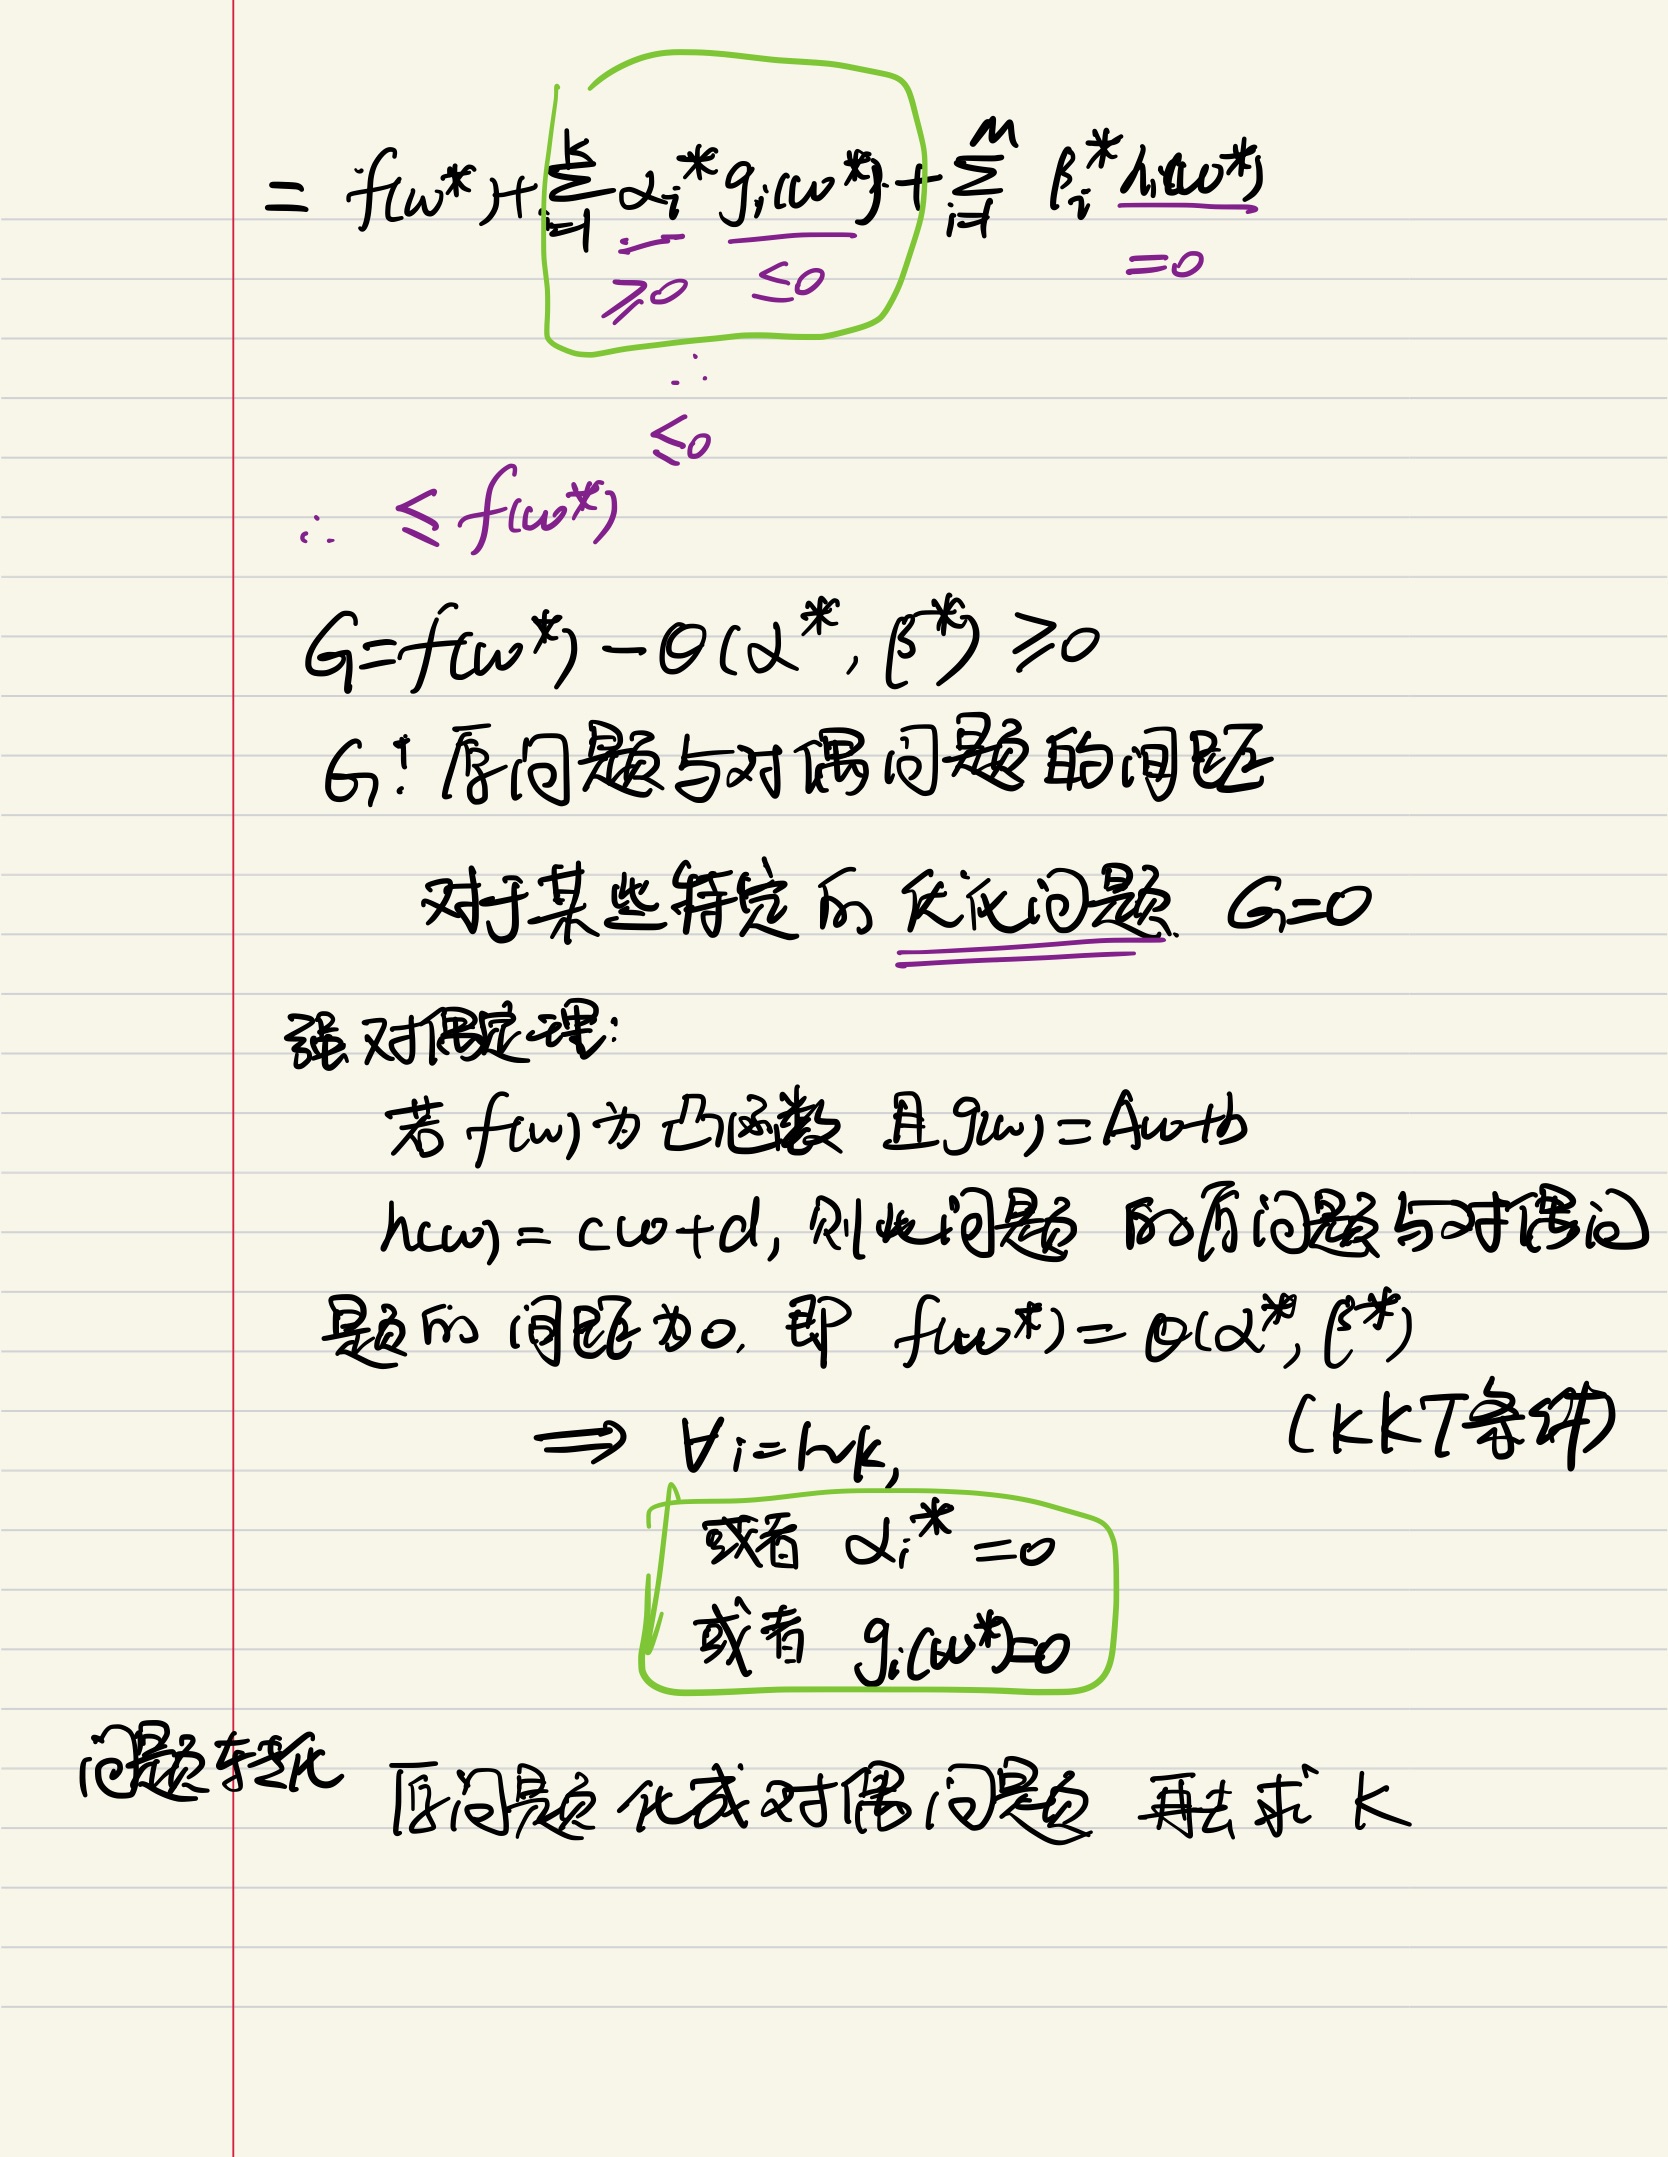 = f(ω*) + ∑_{i=1}^{k} α_i* g_i(ω*) + ∑_{i=1}^{M} β_i* h_i(ω*)
≥0 ≤0 =0
∴
≤0
∴ ≤ f(ω*)
G=f(ω*) - θ(α*, β*) ≥0
G: 原问题与对偶问题的间距
对于某些特定的优化问题 G=0
强对偶定理:
若 f(ω) 为凸函数 且 g(ω) = Aω+b
h(ω) = cω+d, 则此问题 的原问题与对偶问
题的间距为0. 即 f(ω*) = θ(α*, β*)
(KKT条件)
⇒ ∀i=1~k,
或者 α_i* =0
或者 g_i(ω*)=0
问题转化 原问题化成对偶问题 再去求 K